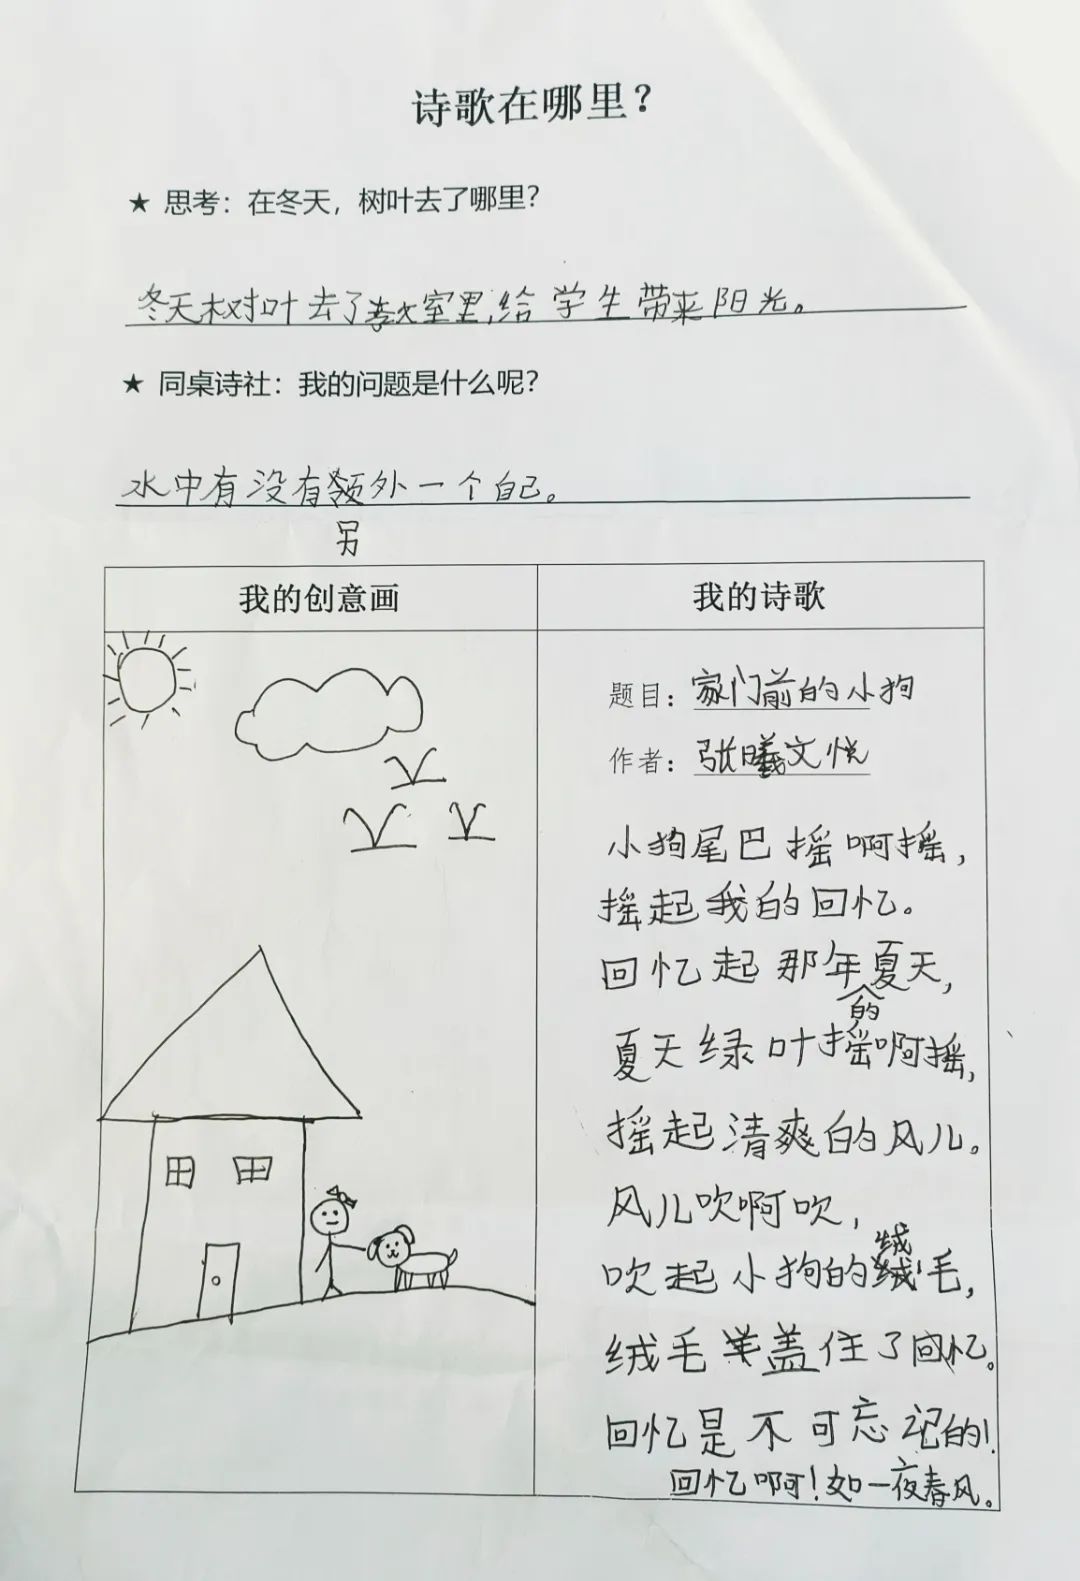 诗歌在哪里？
★ 思考：在冬天，树叶去了哪里？
冬天树叶去了教室里,给学生带来阳光。
★ 同桌诗社：我的问题是什么呢？
水中有没有领外一个自己。
另
我的创意画
我的诗歌
题目：家门前的小狗
作者：张曦文悦
小狗尾巴摇啊摇，
摇起我的回忆。
回忆起那年夏天，
的
夏天绿叶摇啊摇，
摇起清爽的风儿。
风儿吹啊吹，
绒
吹起小狗的绒毛，
绒毛盖住了回忆。
回忆是不可忘记的！
回忆啊！如一夜春风。